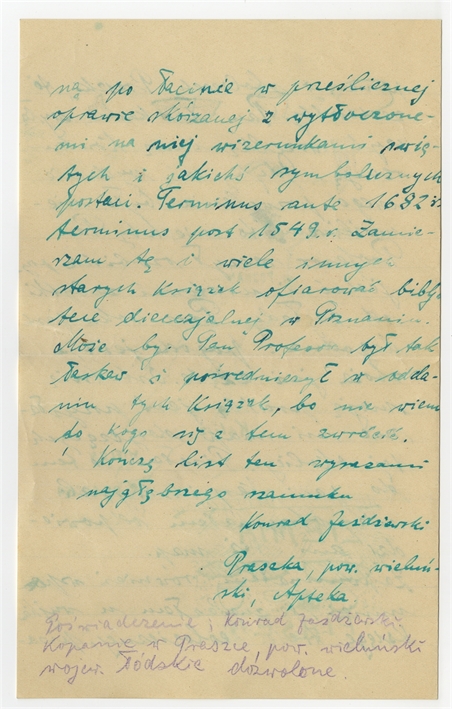 ną po łacinie w prześlicznej
oprawie skórzanej z wytłoczone-
mi na niej wizerunkami świę-
tych i jakichś symbolicznych
postaci. Terminus ante 1682 r.
terminus post 1549 r. Zamie-
rzam tę i wiele innych
starych książek ofiarować biblio
tece diecezjalnej w Poznaniu.
Może by Pan Profesor był tak
łaskaw i pośredniczył w odda-
niu tych książek, bo nie wiem
do kogo się z tem zwrócić.
Kończę list ten wyrazami
najgłębszego szacunku
Konrad Jażdżewski
Praszka, pow. wieluń-
ski, Apteka.
Poświadczenie; Konrad Jażdżewski.
Kopanie w Praszce, pow. wieluński
wojew. Łódzkie dozwolone.